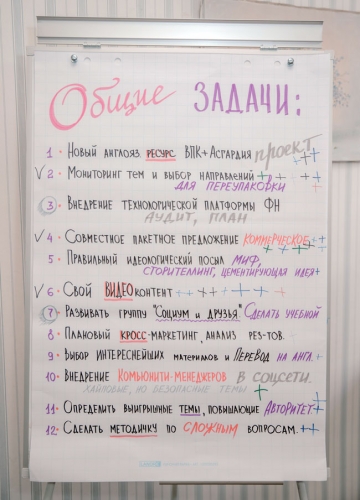 Общие ЗАДАЧИ:
1· Новый англояз. ресурс ВПК+Асгардия проект
✓2· Мониторинг тем и выбор направлений
для переупаковки
3· Внедрение технологической платформы ФН
аудит, план
✓4· Совместное пакетное предложение коммерческое
5· Правильный идеологический посыл миф,
сторителлинг, цементирующая идея
✓6· Свой видеоконтент
7· Развивать группу "Социум и друзья" Сделать учебной
8· Плановый кросс-маркетинг, анализ рез-тов.
9· Выбор интереснейших материалов и перевод на англ.
10· Внедрение комьюнити-менеджеров в соцсети.
хайповые, но безопасные темы
11· Определить выигрышные темы, повышающие авторитет
12· Сделать методичку по сложным вопросам.